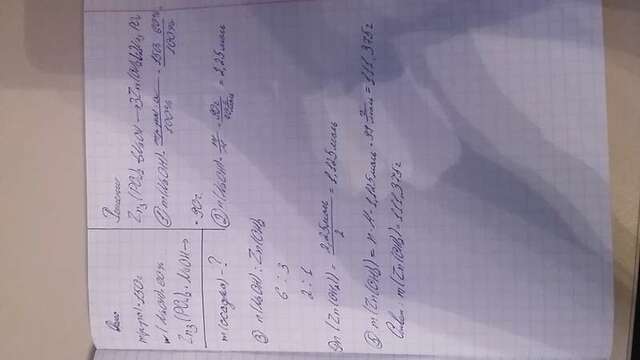 Дано
m(р-ра)=150г
w(NaOH)=60%
Zn₃(PO₄)₂+NaOH→
m(осадка)-?
Решение
Zn₃(PO₄)₂+6NaOH→3Zn(OH)₂↓+2Na₃PO₄
① m(NaOH)= = 150·60% / 100%
= 90г
② n(NaOH)= m/M = 90г / 40г/моль = 2,25моль
③ n(NaOH):Zn(OH)₂
6 : 3
2 : 1
④n(Zn(OH)₂)= 2,25моль / 2 = 1,125моль
⑤ m(Zn(OH)₂)= n·M= 1,125моль·99г/моль = 111,375г
Ответ: m(Zn(OH)₂)=111,375г